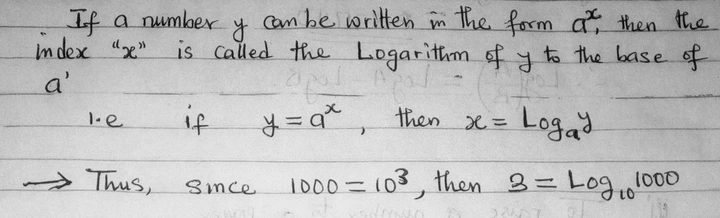 If a number y can be written in the form aˣ, then the
index "x" is called the Logarithm of y to the base of
a'
i.e if y = aˣ, then x = Logₐy
→ Thus, since 1000 = 10³, then 3 = Log₁₀1000